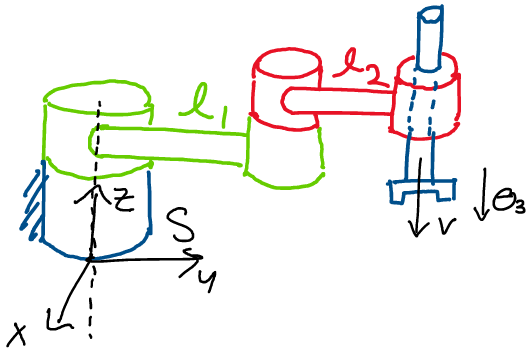 l₂
l₁
z
S
y
x
v
θ₃